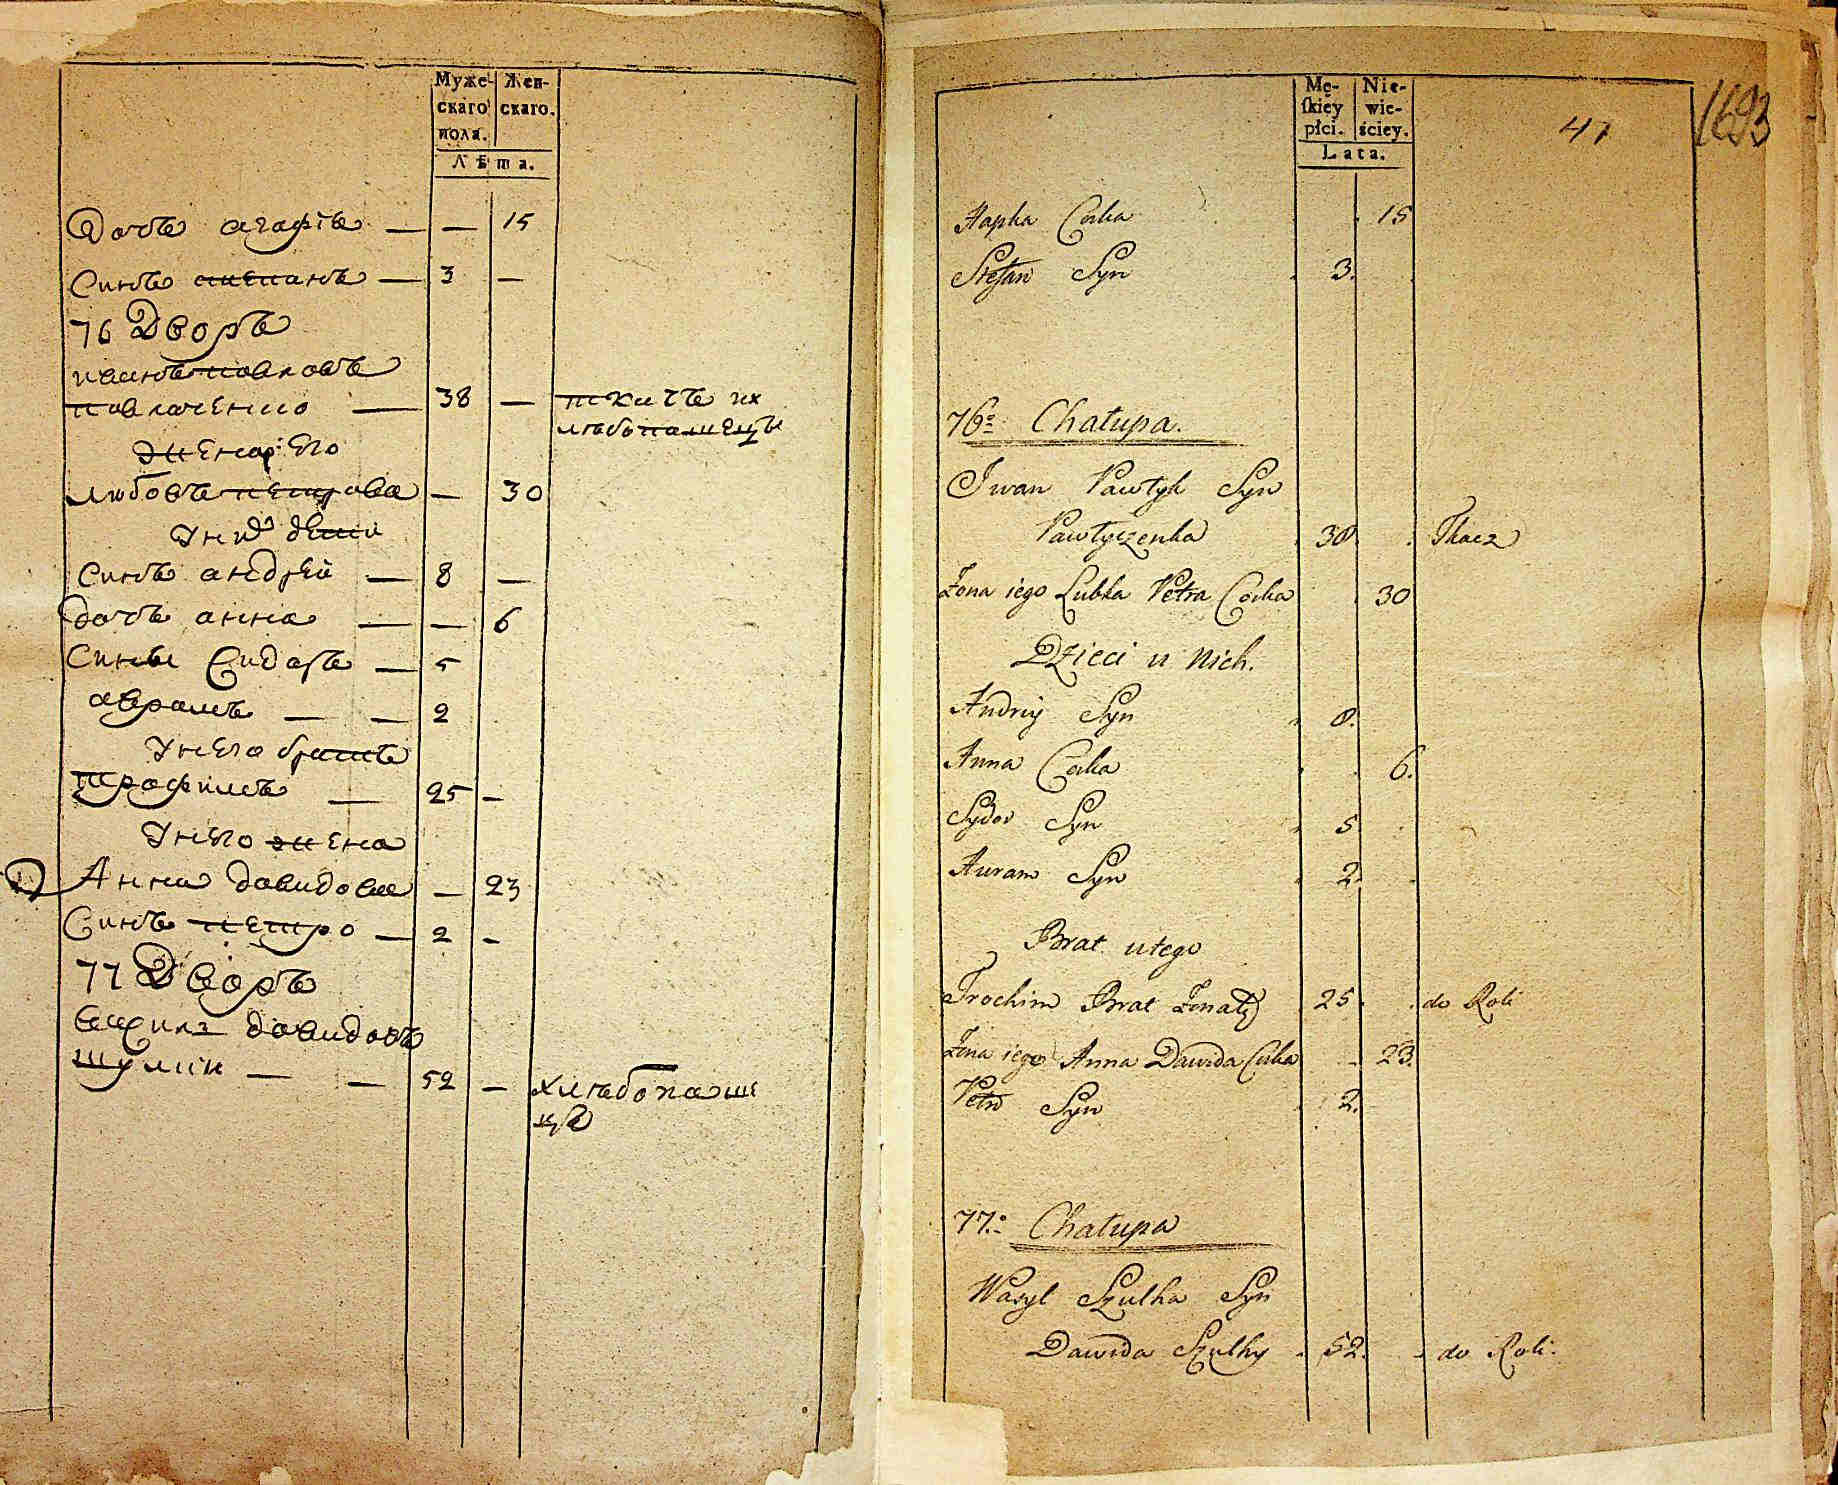 Муже-
скаго
пола.
Жен-
скаго.
Лѣта.
Дочь агафія — — 15
Синъ степанъ — 3 —
76 Дворъ
иванъ павловъ
павлюченко — 38 — ткачь и
хлѣбопашецъ
жена его
любовь петрова — 30
У них дети
Синъ андрей — 8 —
дочь анна — — 6
Сины Сидоръ — 5
аврамъ — — 2
У него братъ
трофимъ — 25 —
У него жена
Анна давидова — 23
Синъ петро — 2 —
77 Дворъ
васила давидовъ
шулки — — 52 — хлѣбопаше
цъ
Mę-
ſkiey
płci.
Nie-
wie-
ściey.
Lata.
41
1693
Hapka Corka 15
Stefan Syn 3.
76º Chałupa.
Iwan Pawłyk Syn
Pawłyczenka 38 Tkacz
Żona iego Lubka Petra Corka 30
Dzieci u nich.
Andriy Syn 8.
Anna Corka 6.
Sydor Syn 5
Auram Syn 2.
Brat u tego
Trochim Brat Żonaty 25 do Roli
Żona iego Anna Dawida Corka 23.
Petro Syn 2.
77º Chałupa
Wasyl Szulka Syn
Dawida Szulky 52. do Roli.